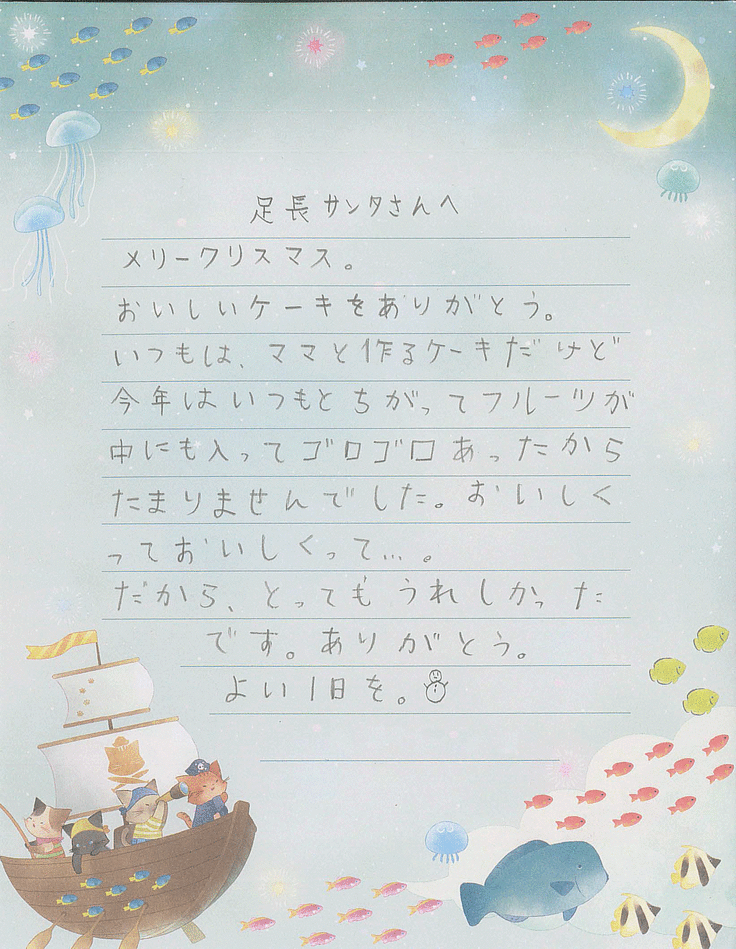 足長サンタさんへ
メリークリスマス。
おいしいケーキをありがとう。
いつもは、ママと作るケーキだけど
今年はいつもとちがってフルーツが
中にも入ってゴロゴロあったから
たまりませんでした。おいしく
っておいしくって…。
だから、とってもうれしかった
です。ありがとう。
よい1日を。